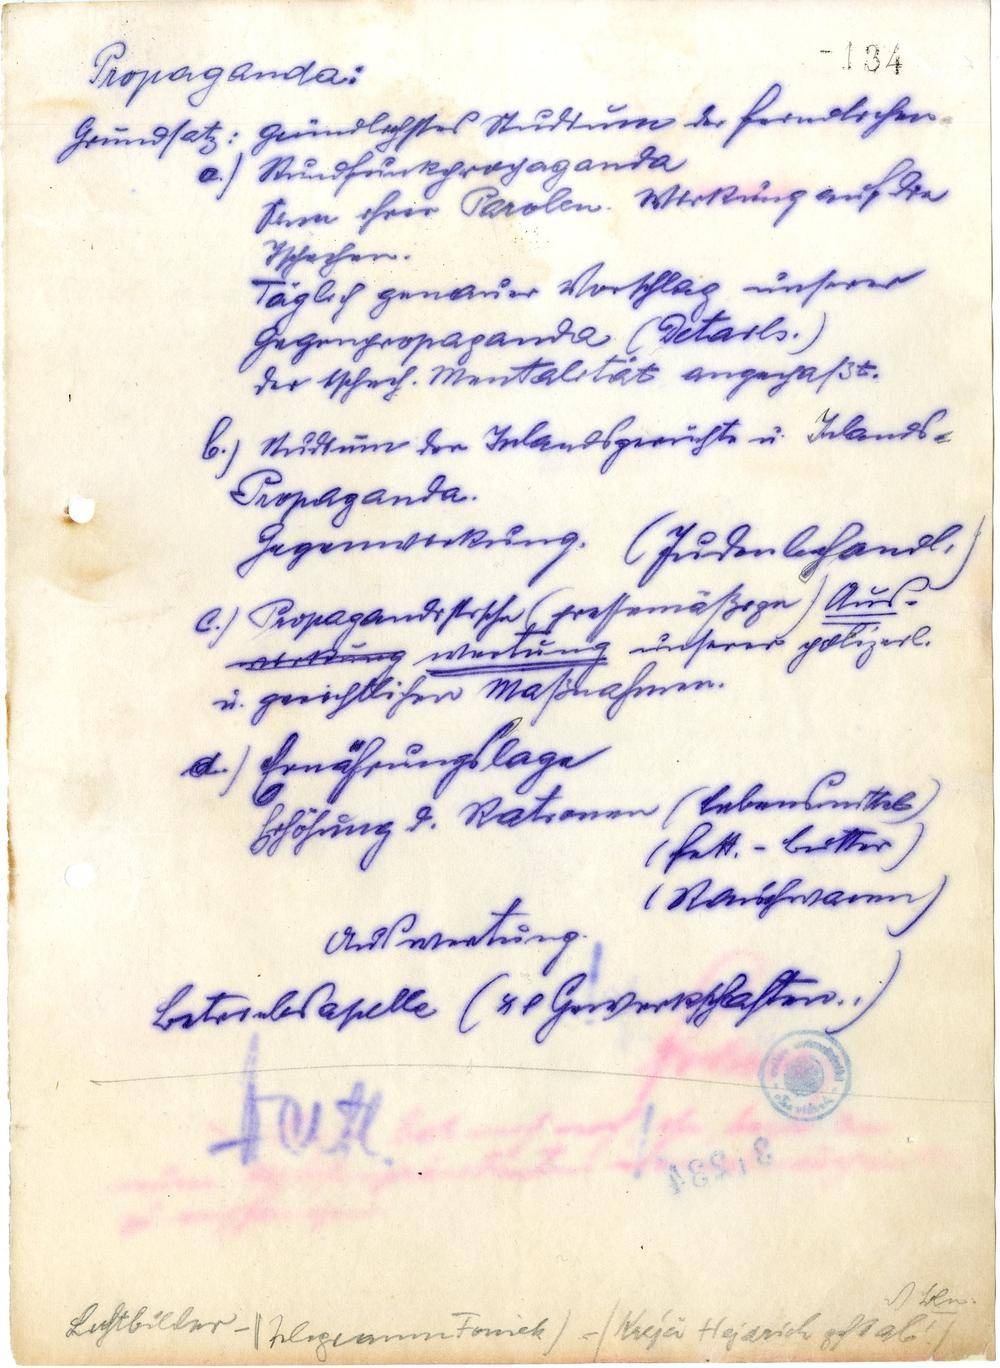 -134
Propaganda:
Grundsatz: gründlichstes Studium der feindlichen
a.) Rundfunkpropaganda
Sinn ihrer Parolen. Wirkung auf die
Tschechen.
Täglich genauer Vorschlag unserer
Gegenpropaganda (Details.)
der tschech. Mentalität angepaßt.
b.) Studium der Inlandsgerüchte u. Inlands-
Propaganda.
Gegenwirkung. (Judenbehandl.)
c.) Propagandistische (pressemäßige) Aus-
wirkung wertung unserer polizeil.
u. gerichtlichen Maßnahmen.
d.) Ernährungslage
Erhöhung d. Rationen (Lebensmittel)
(Fett. - Butter)
(Rauchwaren)
Auswertung.
Betriebsapelle (Gewerkschaften..)
Luftbilder - ( ) - (Krejčí Hejdrich